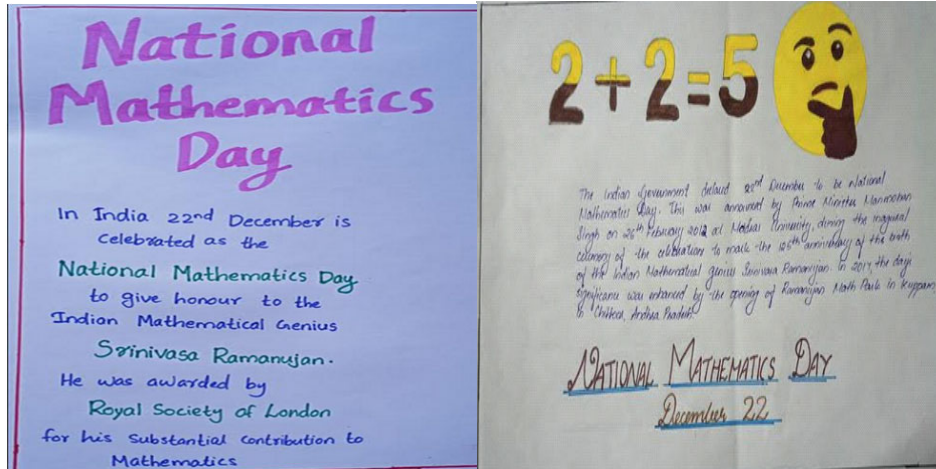 National
Mathematics
Day
In India 22nd December is
celebrated as the
National Mathematics Day
to give honour to the
Indian Mathematical Genius
Srinivasa Ramanujan.
He was awarded by
Royal Society of London
for his substantial contribution to
Mathematics
2+2=5
The Indian Government declared 22nd December to be National
Mathematics Day. This was announced by Prime Minister Manmohan
Singh on 26th February 2012 at Madras University, during the inaugural
ceremony of the celebration to mark the 125th anniversary of the birth
of the Indian Mathematical genius Srinivasa Ramanujan. In 2017, the day's
significance was enhanced by the opening of Ramanujan Math Park in Kuppam,
in Chittoor, Andhra Pradesh.
NATIONAL MATHEMATICS DAY
December 22